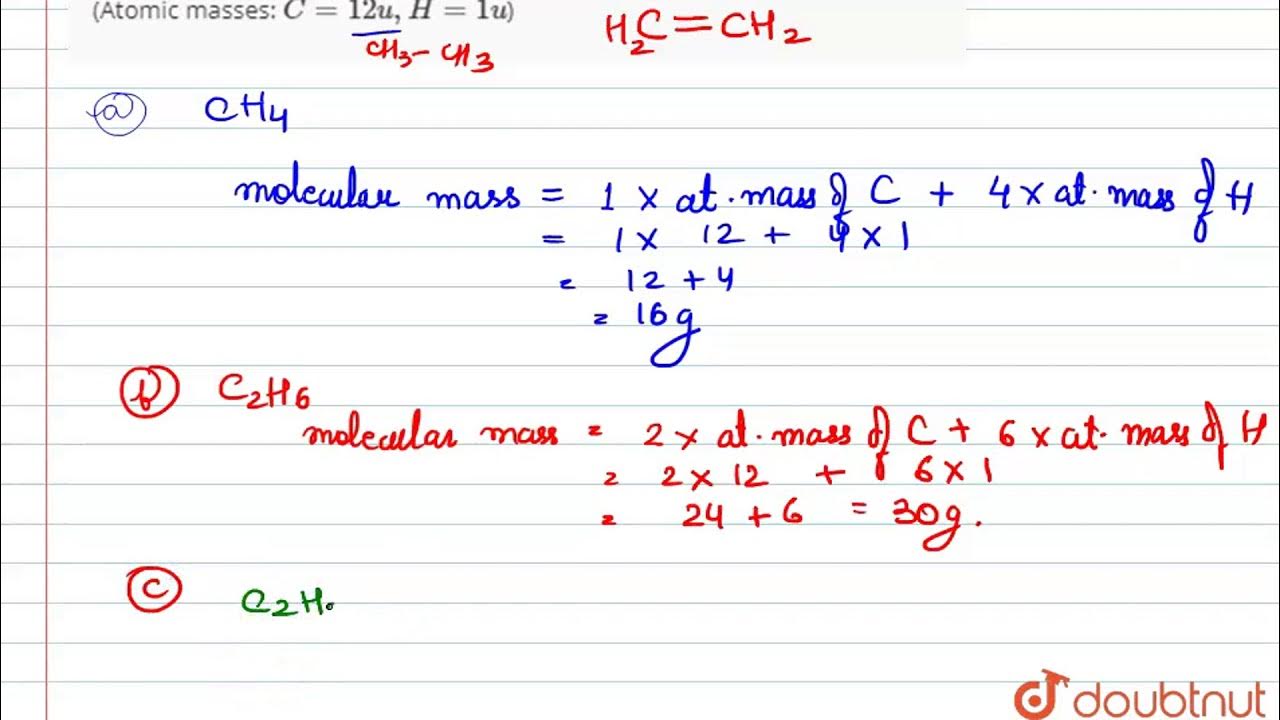 (Atomic masses: C = 12u, H = 1u)
CH₃- CH₃
H₂C=CH₂
(a) CH₄
molecular mass = 1 x at. mass of C + 4 x at. mass of H
= 1 x 12 + 4 x 1
= 12 + 4
= 16g
(b) C₂H₆
molecular mass = 2 x at. mass of C + 6 x at. mass of H
= 2 x 12 + 6 x 1
= 24 + 6 = 30g.
(c) C₂H
doubtnut